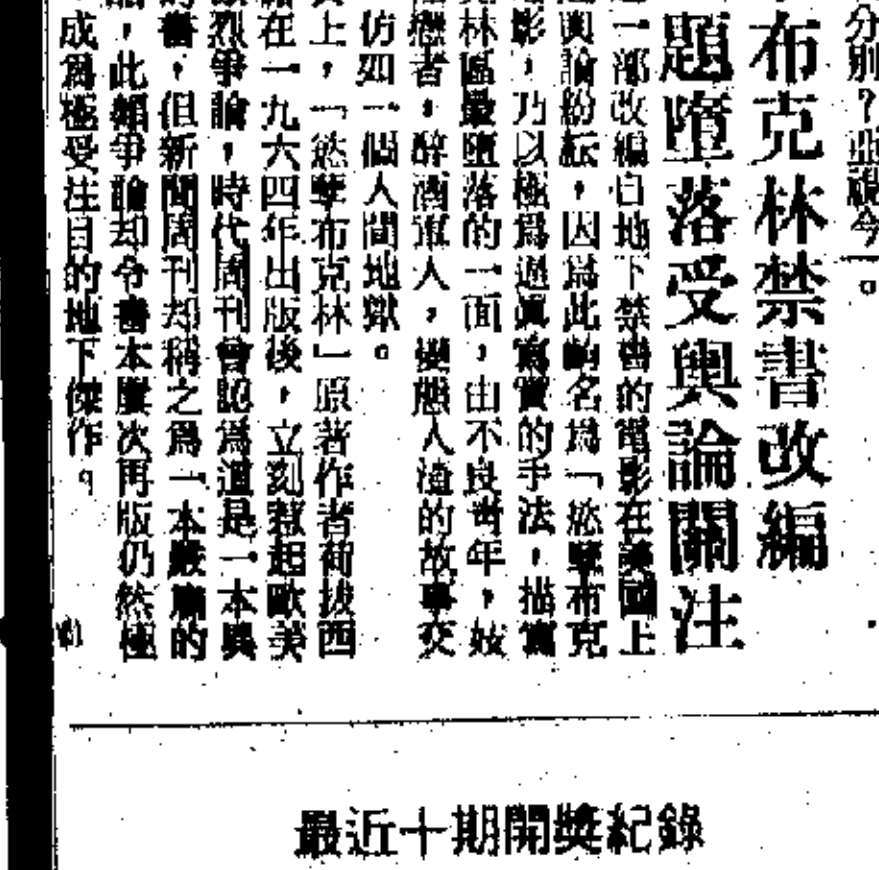 分別？亞視今一。
布克林禁書改編
題墮落受輿論關注
一部改編自地下禁書的電影在美國上
輿論紛紜，因爲此齣名爲「慾孽布克
影，乃以極爲逼眞寫實的手法，描寫
林區最墮落的一面，由不良靑年，妓
者，醉酒軍人，變態人渣的故事交
仿如一個人間地獄。
上，「慾孽布克林」原著作者荷拔西
在一九六四年出版後，立刻惹起歐美
烈爭論，時代周刊曾認爲這是一本
書，但新聞周刊却稱之爲一本嚴肅的
，此類爭論却令書本屢次再版仍然極
成爲極受注目的地下傑作。
最近十期開獎紀錄